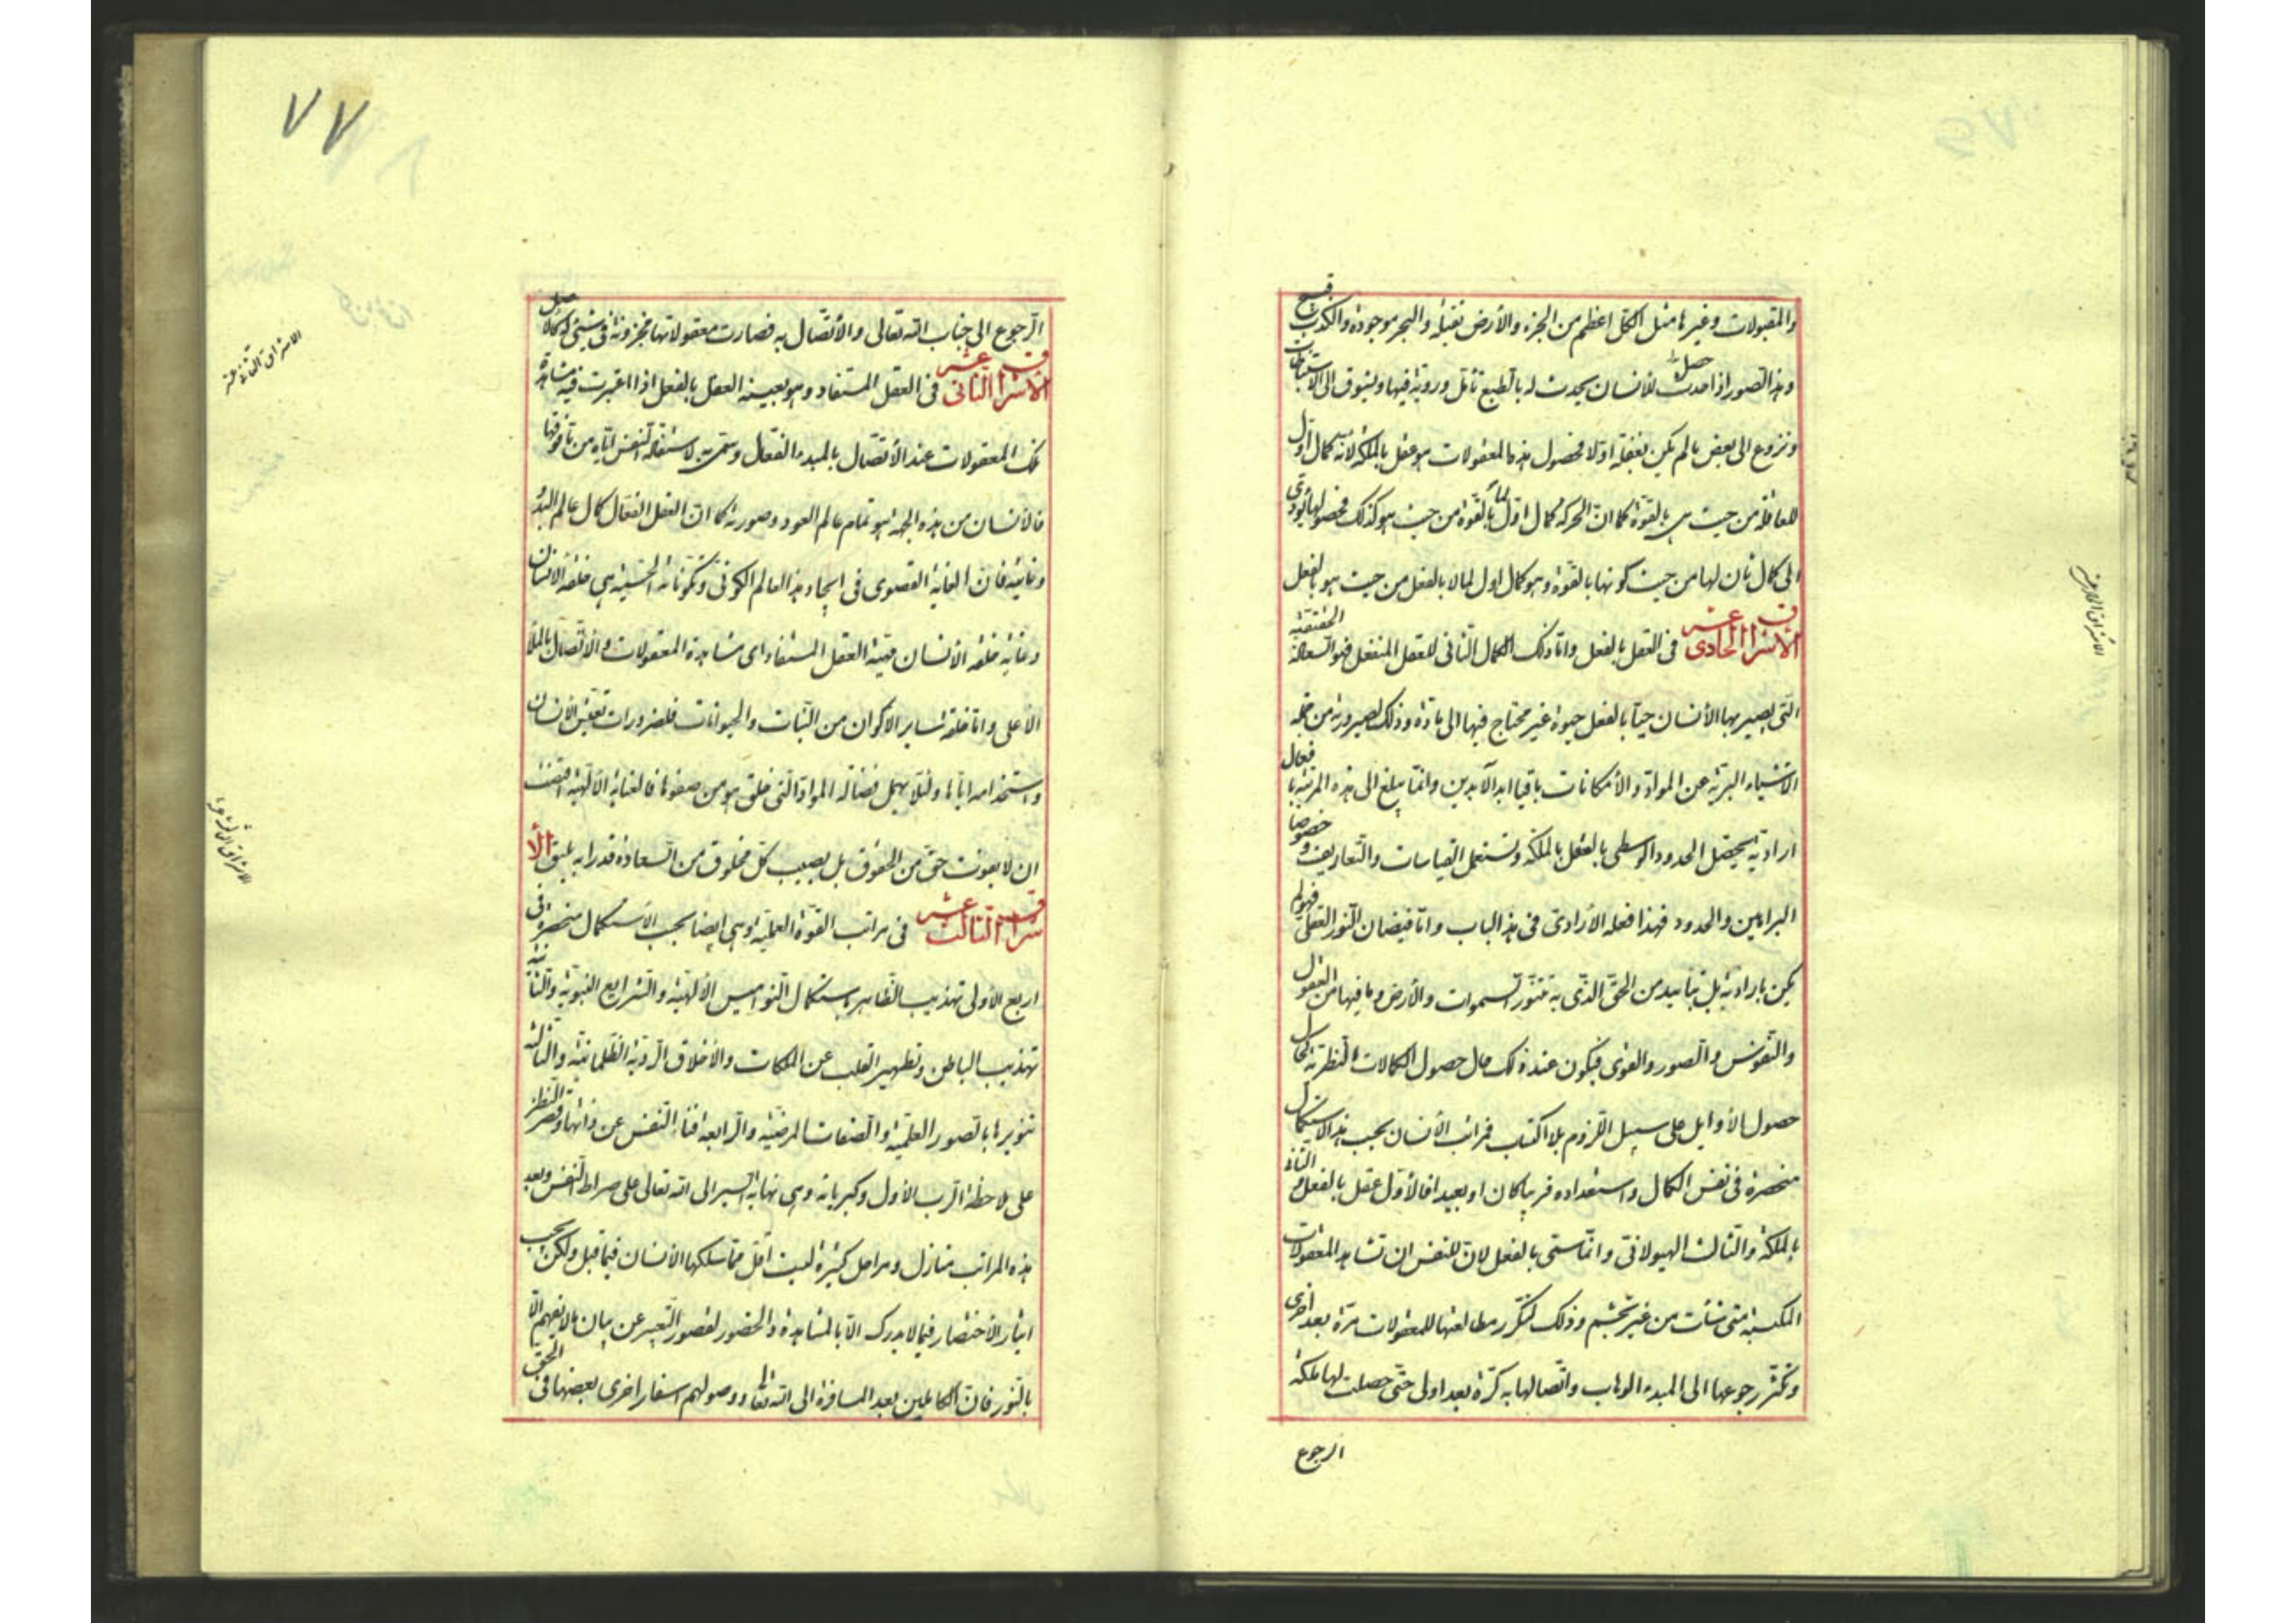 والمقبولات وغيرها مثل الكل اعظم من الجزء والأرض ثقيلة والبحر موجودة والكذب قبيح
وهذا التصور اذا حدث حصل للأنسان يحدث له بالطبع تأمل وروية فيها وتشوق الى الاستنباطات
ونزوع الى بعض ما لم يكن يعقله اولا فحصول هذه المعقولات هو عقل بالملكة لانه كمال اول
للعاقلة من حيث هي بالقوة كما ان الحركة كمال اول لما بالقوة من حيث هو كذلك فحصولها يؤدى
الى كمال ثان لها من حيث كونها بالقوة وهو كمال اول لما لا بالفعل من حيث هو بالفعل
الاشراق الحادى عشر فى العقل بالفعل واما ذلك الكمال الثانى للعقل المنفعل فهو السعادة الحقيقية
التى يصير بها الأنسان حيا بالفعل حيوة غير محتاج فيها الى مادة وذلك لصيرورته من جملة
الاشياء البرية عن المواد والأمكانات باقيا ابد الآبدين وانما يبلغ الى هذه المرتبة بافعال
ارادية يحصل الحدود الوسطى بالعقل بالملكة وتستعمل القياسات والتعاريف وخصوصا
البراهين والحدود فهذا فعله الأرادى فى هذا الباب واما فيضان النور العقلى فهو لم
يكن بارادته بل بتأييد من الحق الذى به تتنور السموات والأرض وما فيها من العقول
والنفوس والصور والقوى فيكون عند ذلك حال حصول الكمالات النظرية كحال
حصول الأوايل على سبيل اللزوم بلا اكتساب فمراتب الأنسان بحسب هذا الاستكمال
منحصرة فى نفس الكمال واستعداده قريبا كان او بعيدا فالأول عقل بالفعل والثانى
بالملكة والثالث الهيولانى وانما سمى بالفعل لان للنفس ان تشاهد المعقولات
المكتسبة متى شاءت من غير تجشم وذلك لتكرر مطالعتها للمعقولات مرة بعد اخرى
وتكثر رجوعها الى المبدء الوهاب واتصالها به كرة بعد اولى حتى حصلت لها ملكة
الرجوع
الاشراق الحادى عشر
٧٧
الرجوع الى جناب الله تعالى والأتصال به فصارت معقولاتها مخزونة فى شىء كالاصل
الاشراق الثانى عشر فى العقل المستفاد وهو بعينه العقل بالفعل اذا اعتبرت فيه مشاهدة
تلك المعقولات عند الأتصال بالمبدء الفعال وسمى به لاستفادة النفس اياه من ما فوقها
فالأنسان من هذه الجهة هو تمام عالم العود وصورته كما ان العقل الفعال كمال عالم البدو
وغايته فان الغاية القصوى فى ايجاد هذا العالم الكونى ومكوناته الحسية هى خلقة الانسان
وغاية خلقة الأنسان مرتبة العقل المستفاد اى مشاهدة المعقولات والأتصال بالملأ
الأعلى واما خلقة ساير الاكوان من النبات والحيوانات فلضرورات تعيش الأنسان
واستخدامه اياها ولئلا يهمل فضالة المواد التى خلق هو من صفوها فالعناية الآلهية اقتضت
ان لا يفوت حق من الحقوق بل يصيب كل مخلوق من السعادة قدرا به يليق الأ
شراق الثالث عشر فى مراتب القوة العملية وهى ايضا بحسب الاستكمال منحصرة فى
اربع الأولى تهذيب الظاهر باستكمال النواميس الألهية والشرايع النبوية والثانية
تهذيب الباطن وتطهير القلب عن الملكات والأخلاق الردية الظلمانية والثالثة
تنويرها بالصور العلمية والصفات المرضية والرابعة فناء النفس عن ذاتها وقصر النظر
على ملاحظة الرب الأول وكبريائه وهى نهاية السير الى الله تعالى على صراط النفس وبعد
هذه المراتب منازل ومراحل كثيرة ليست اقل مما سلكها الأنسان فيما قبل ولكن يجب
ايثار الأختصار فيما لا يدرك الا بالمشاهدة والحضور لقصور التعبير عن بيان ما لا يفهم الا
بالنور فان الكاملين بعد المسافرة الى الله تعالى ووصولهم اسفار اخرى بعضها فى الحق
الاشراق الثانى عشر
الاشراق الثالث عشر